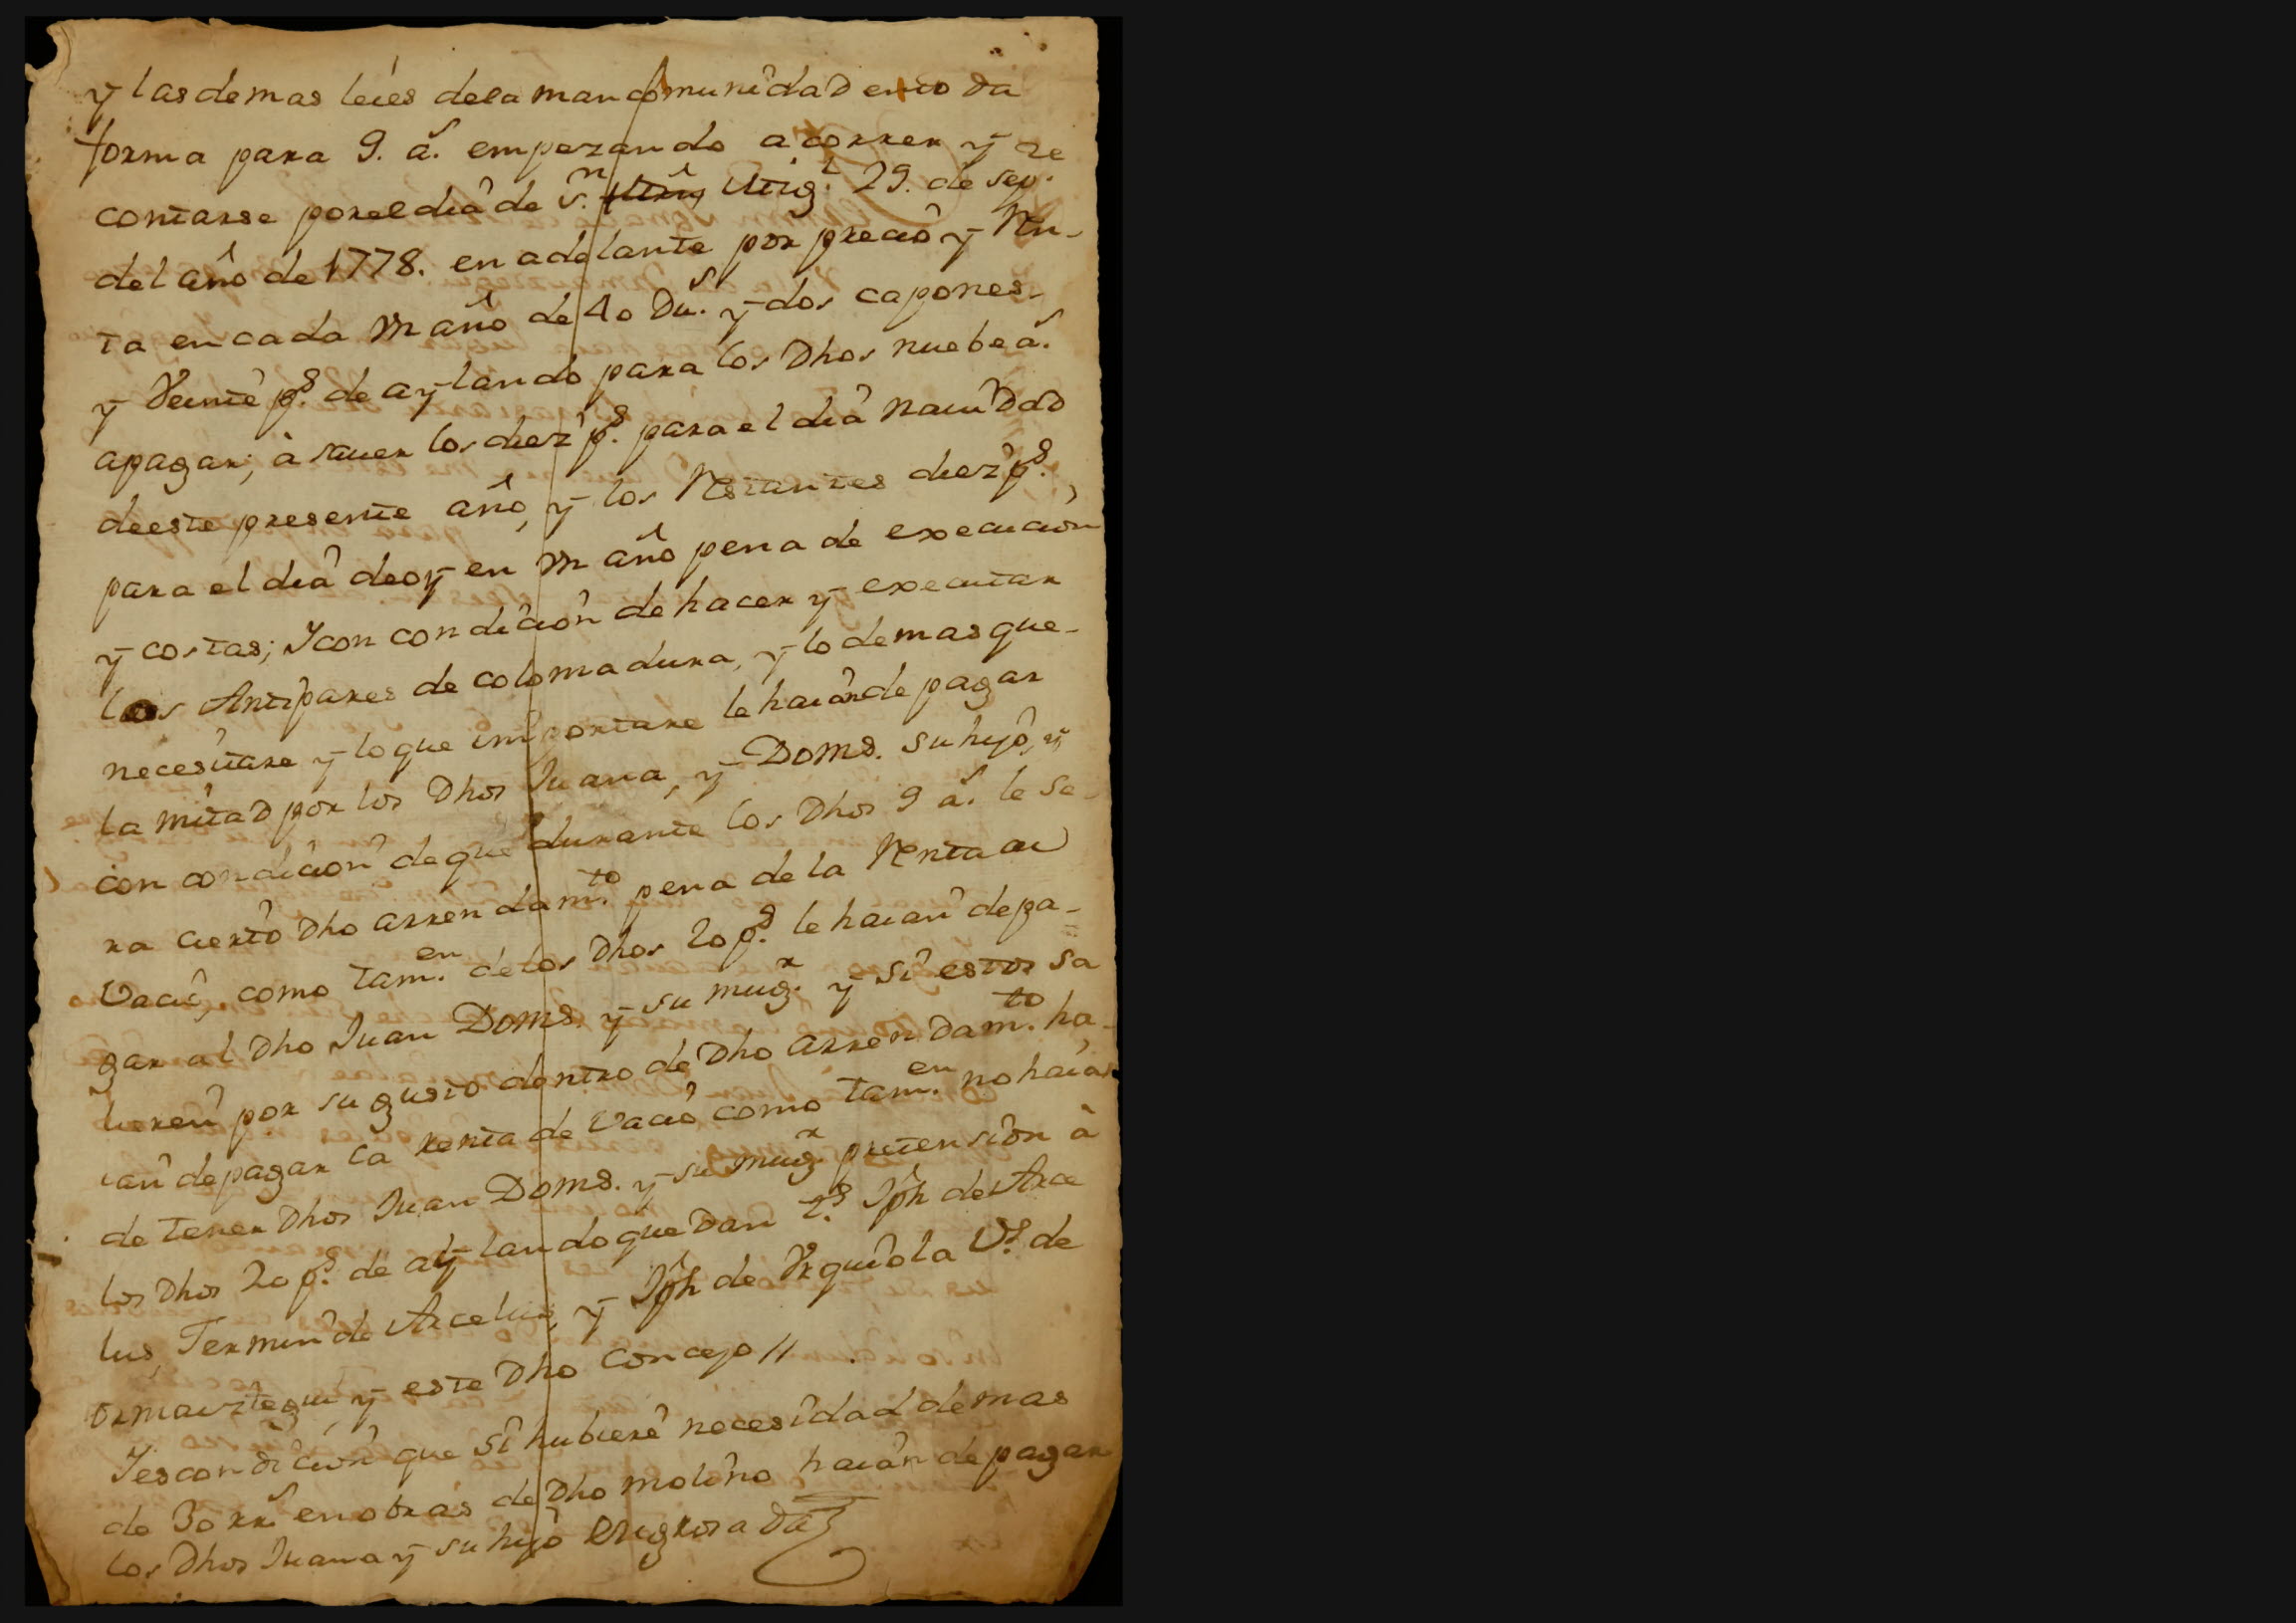 y las demas leies dela mancomunidad en toda
forma para 9. a.s empezando a correr y re
contarse por el dia de S.n Mig.l 29. de sep.
del año de 1778. en adelante por precio y Ren-
ta en cada un año de 40 Du.s y dos capones-
y Veinte p.s de aylando para los Dhos nuebe a.s
apagar; à sauer los diez p.s para el dia nauidad
deeste presente año, y los Restantes diez p.s
para el dia deoy en un año pena de execucion
y costas; Y con condicion de hacer y executar
los Antipares de colomadura, y lo demas que-
necesitare y lo que importare le haian de pagar
la mitad por los Dhos Juana, y Doms. su hijo, y
con condicion de que durante los Dhos 9 a.s le se-
ra cierto Dho arrendam.to pena de la Renta de
Vacio, como tam.en de los Dhos 20 p.s le haian depa-
gar al Dho Juan Doms. y su mug.r y si estos sa
lieren por su gusto dentro de Dho arrendam.to ha-
ian de pagar la renta de Vacio como tam.en no haian
de tener Dhos Juan Doms. y su mug.r pretension à
los Dhos 20 p.s de aylando que Dan t.s Jph de Arce
lus, Fermin de Arcelus, y Jph de Urquiola V.s de
ormaiztegui y este Dho Concejo //
Y es condicion que si hubiere necesidad demas
de 30 rr.s en obras de Dho molino haian de pagar
los Dhos Juana y su hijo Engrosada